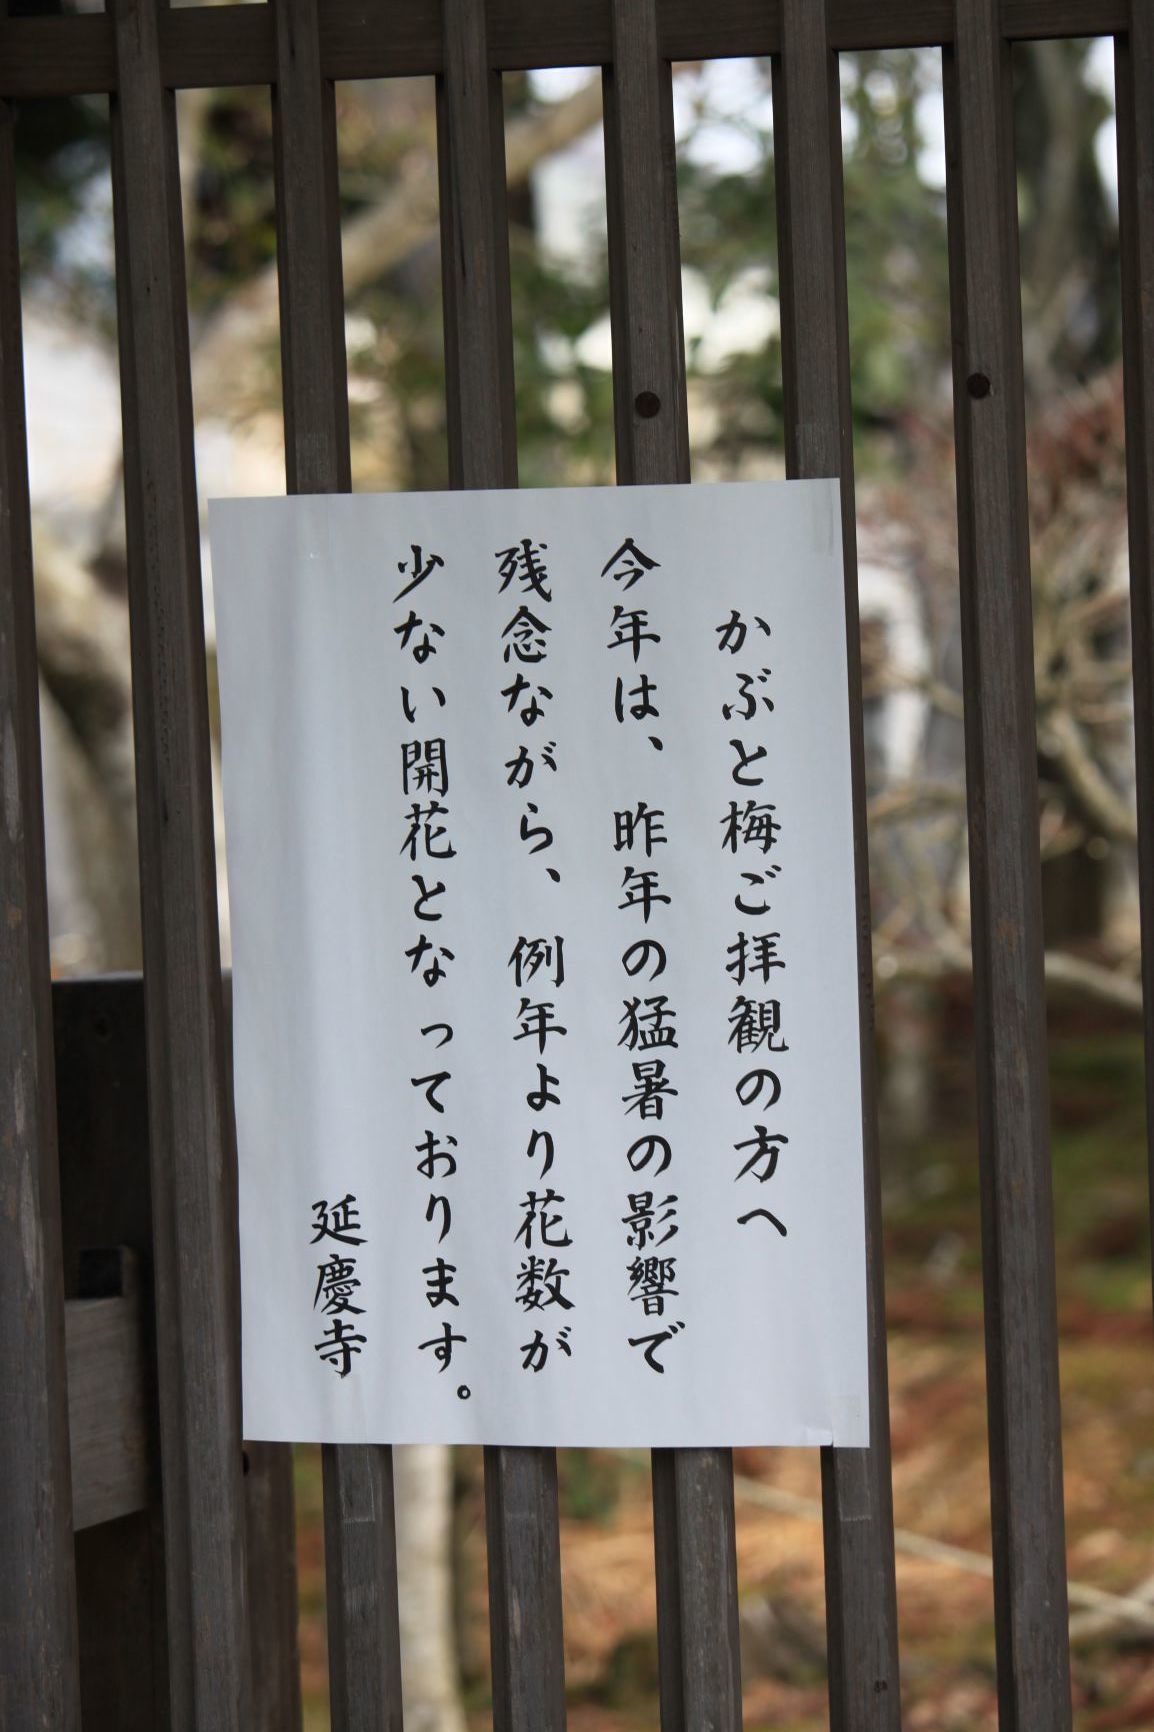 かぶと梅ご拝観の方へ
今年は、昨年の猛暑の影響で
残念ながら、例年より花数が
少ない開花となっております。
延慶寺